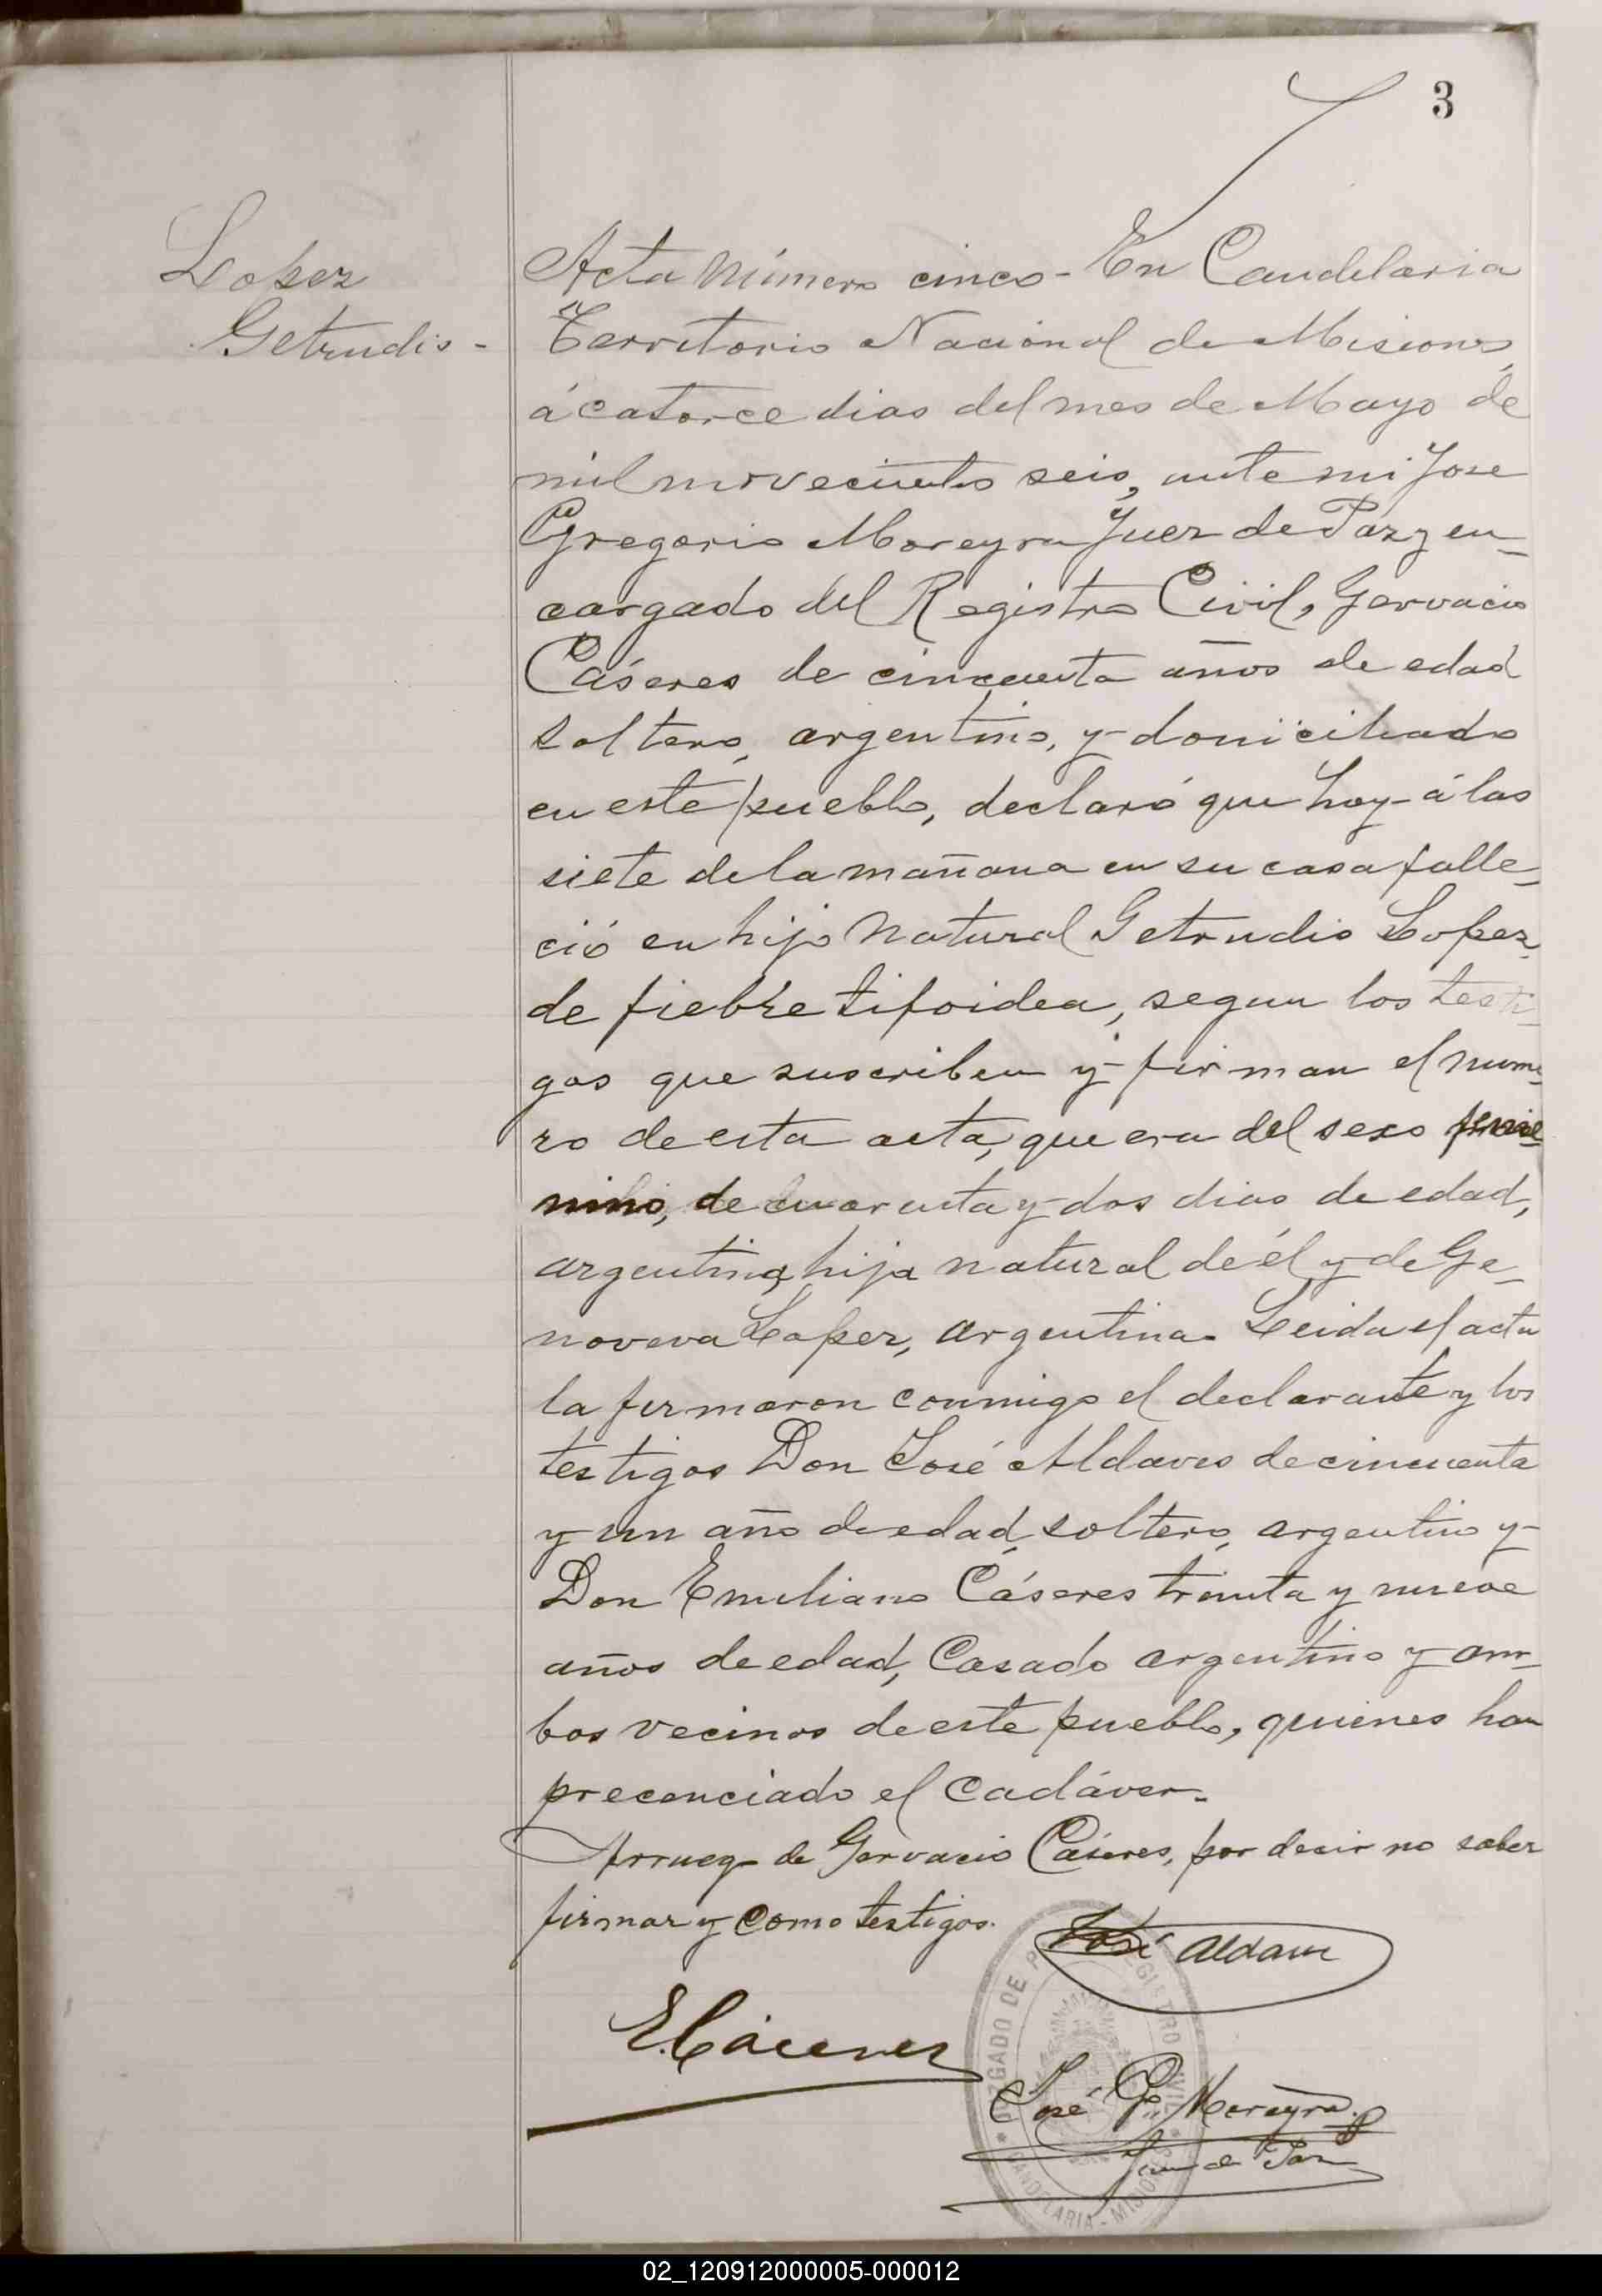 3
Lopez
Getrudis -
Acta Número cinco - En Candelaria
Territorio Nacional de Misiones,
á catorce dias del mes de Mayo de
mil novecientos seis, ante mi Jose
Gregorio Moreyra Juez de Paz y en-
cargado del Registro Civil, Gervacio
Cáseres de cincuenta años de edad
soltero, argentino, y domiciliado
en este pueblo, declaró que hoy á las
siete de la mañana en su casa falle-
ció su hijo natural Getrudis Lopez
de fiebre tifoidea, segun los testi-
gos que suscriben y firman el nume-
ro de esta acta, que era del sexo feme-
nino, de cuarenta y dos dias de edad,
argentina, hija natural de él y de Ge-
noveva Lopez, argentina. Leida el acta
la firmaron conmigo el declarante y los
testigos Don José Aldaves de cincuenta
y un año de edad, soltero, argentino y
Don Emiliano Cáseres trinta y nueve
años de edad, Casado argentino y am-
bos vecinos de este pueblo, quienes han
precenciado el Cadáver.
Arrueg- de Gervacio Cáseres, por decir no saber
firmar y como testigos.
José Aldaves
E. Cáceres
José G. Moreyra
Juez de Paz
JUZGADO DE P REGISTRO CIVIL
CANDELARIA - MISIONES
02_120912000005-000012